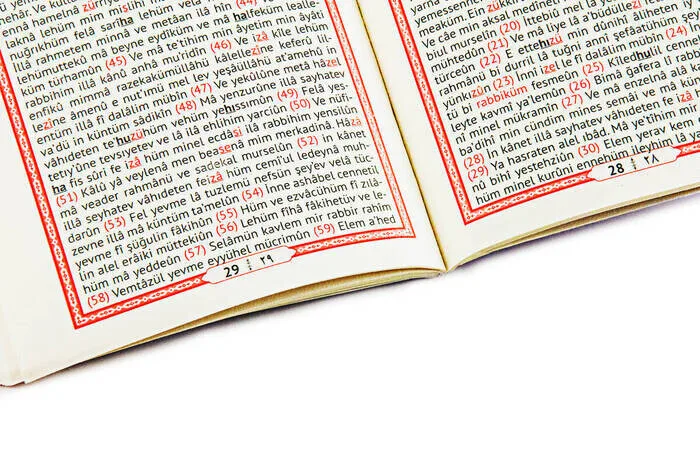 nuğrikhüm felâ sariha lehüm ve
illâ rahmeten minnâ ve metâan ilâ hîn (44)
lehümuttekû mâ beyne eydîküm ve mâ halfeküm lealle-
küm türhamûn (45) Ve mâ te'tîhim min âyetin min âyâti
rabbihim illâ kânû anhâ mu'ridîn (46) Ve izâ kîle lehüm
enfikû mimmâ razekakümüllâhü kâlellezîne keferû lil-
lezîne âmenû e nut'imü mel lev yeşâüllâhü at'amehû in
entüm illâ fî dalâlim mübîn (47) Ve yekûlûne metâ hâzel
va'dü in küntüm sâdikîn (48) Mâ yenzurûne illâ sayhatev
vâhideten te'huzühüm vehüm yehissımûn (49) Felâ yes-
tetîy'ûne tevsıyetev ve lâ ilâ ehlihim yarciûn (50) Ve nüfi-
ha fis sûri fe izâ hüm minel ecdâsi ilâ rabbihim yensilûn
(51) Kâlû yâ veylenâ men beasenâ min merkadinâ. Hâzâ
mâ veader rahmânü ve sadekal murselûn (52) in kânet
illâ sayhatev vâhideten feizâ hüm cemî'ul ledeynâ muh-
darûn (53) Fel yevme lâ tuzlemü nefsün şey'ev velâ tüc-
zevne illâ mâ küntüm ta'melûn (54) İnne ashâbel cennetil
yevme fî şüğulin fâkihûn (55) Hüm ve ezvâcühüm fî zılâ-
lin alel erâiki müttekiûn (56) Lehüm fîhâ fâkihetüv ve le-
hüm mâ yeddeûn (57) Selâmün kavlem mir rabbir rahîm
(58) Vemtâzül yevme eyyühel mücrimûn (59) Elem a'hed
29 ٢٩
yemessenneküm
meakûm. Ein zükkirtüm
Ve câe min aksa medîneti
biul murselîn (20) Ittebiû mel lâ
mühtedûn (21) Ve mâ liye lâ a'büdüllezî
türceûn (22) E ettehizü min dûnihî âliheten
rahmânü bi durril lâ tuğni annî şefâatühüm
yünkızûn (23) İnnî izel le fî dalâlim mübîn (24)
tü bi rabbiküm fesmeûn (25) Kîledhulil cennet
leyte kavmî ya'lemûn (26) Bimâ ğafera lî rabbî
nî minel mükramîn (27) Ve mâ enzelnâ alâ
ba'dihî min cündim mines semâi ve mâ
(28) İn kânet illâ sayhatev vâhideten fe izâ
(29) Ya hasraten alel ibâd. Mâ ye'tîhim
nû bihî yestehziûn (30) Elem yerav kem
hüm minel kurûni ennehüm ileyhim lâ
28 ٢٨